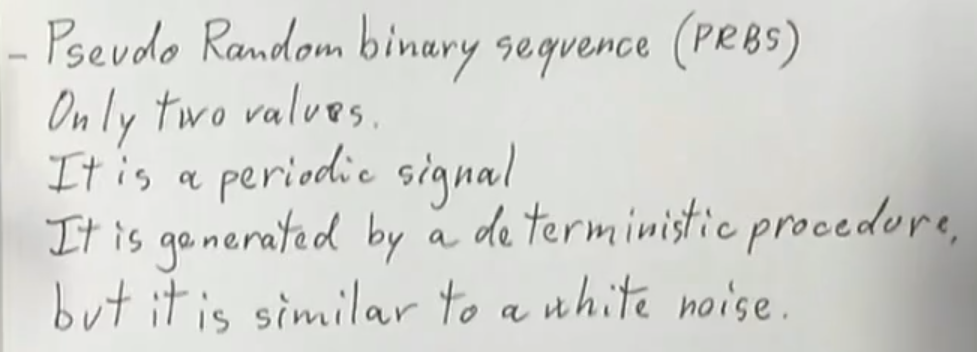 - Pseudo Random binary sequence (PRBS)
Only two values.
It is a periodic signal
It is generated by a deterministic procedure,
but it is similar to a white noise.